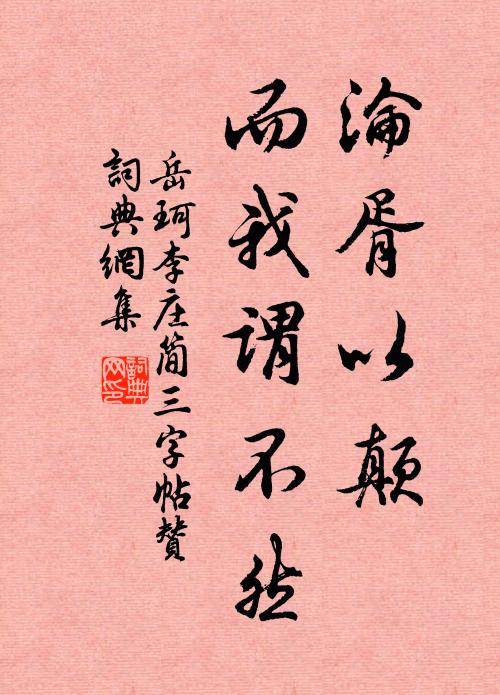 淪胥以顛
而我謂不然
岳珂李庄简三字帖贊
詞典網集
詞典网印